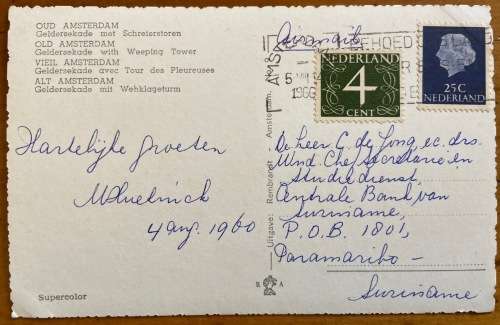 OUD AMSTERDAM
Geldersekade met Schreierstoren
OLD AMSTERDAM
Geldersekade with Weeping Tower
VIEIL AMSTERDAM
Geldersekade avec Tour des Pleureuses
ALT AMSTERDAM
Geldersekade mit Wehklageturm
Hartelijke groeten
4 aug. 1960
Supercolor
Uitgave: Rembrandt Amsterdam
R A
Airmail
AMS
5
196
BEHOED
NEDERLAND
4
CENT
25C
NEDERLAND
De heer C. de Jong, ec. drs.
Wnd. Chef Secretarie en
Studiedienst,
Centrale Bank van
Suriname,
P.O.B. 1801,
Paramaribo -
Suriname